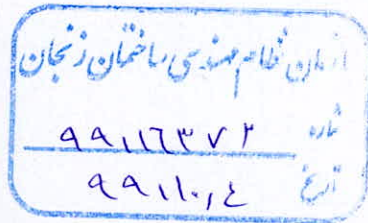 سازمان نظام مهندسی ساختمان زنجان
شماره ۹۹/۱۱۶۳۷۲
تاریخ ۹۹/۱۰/۴